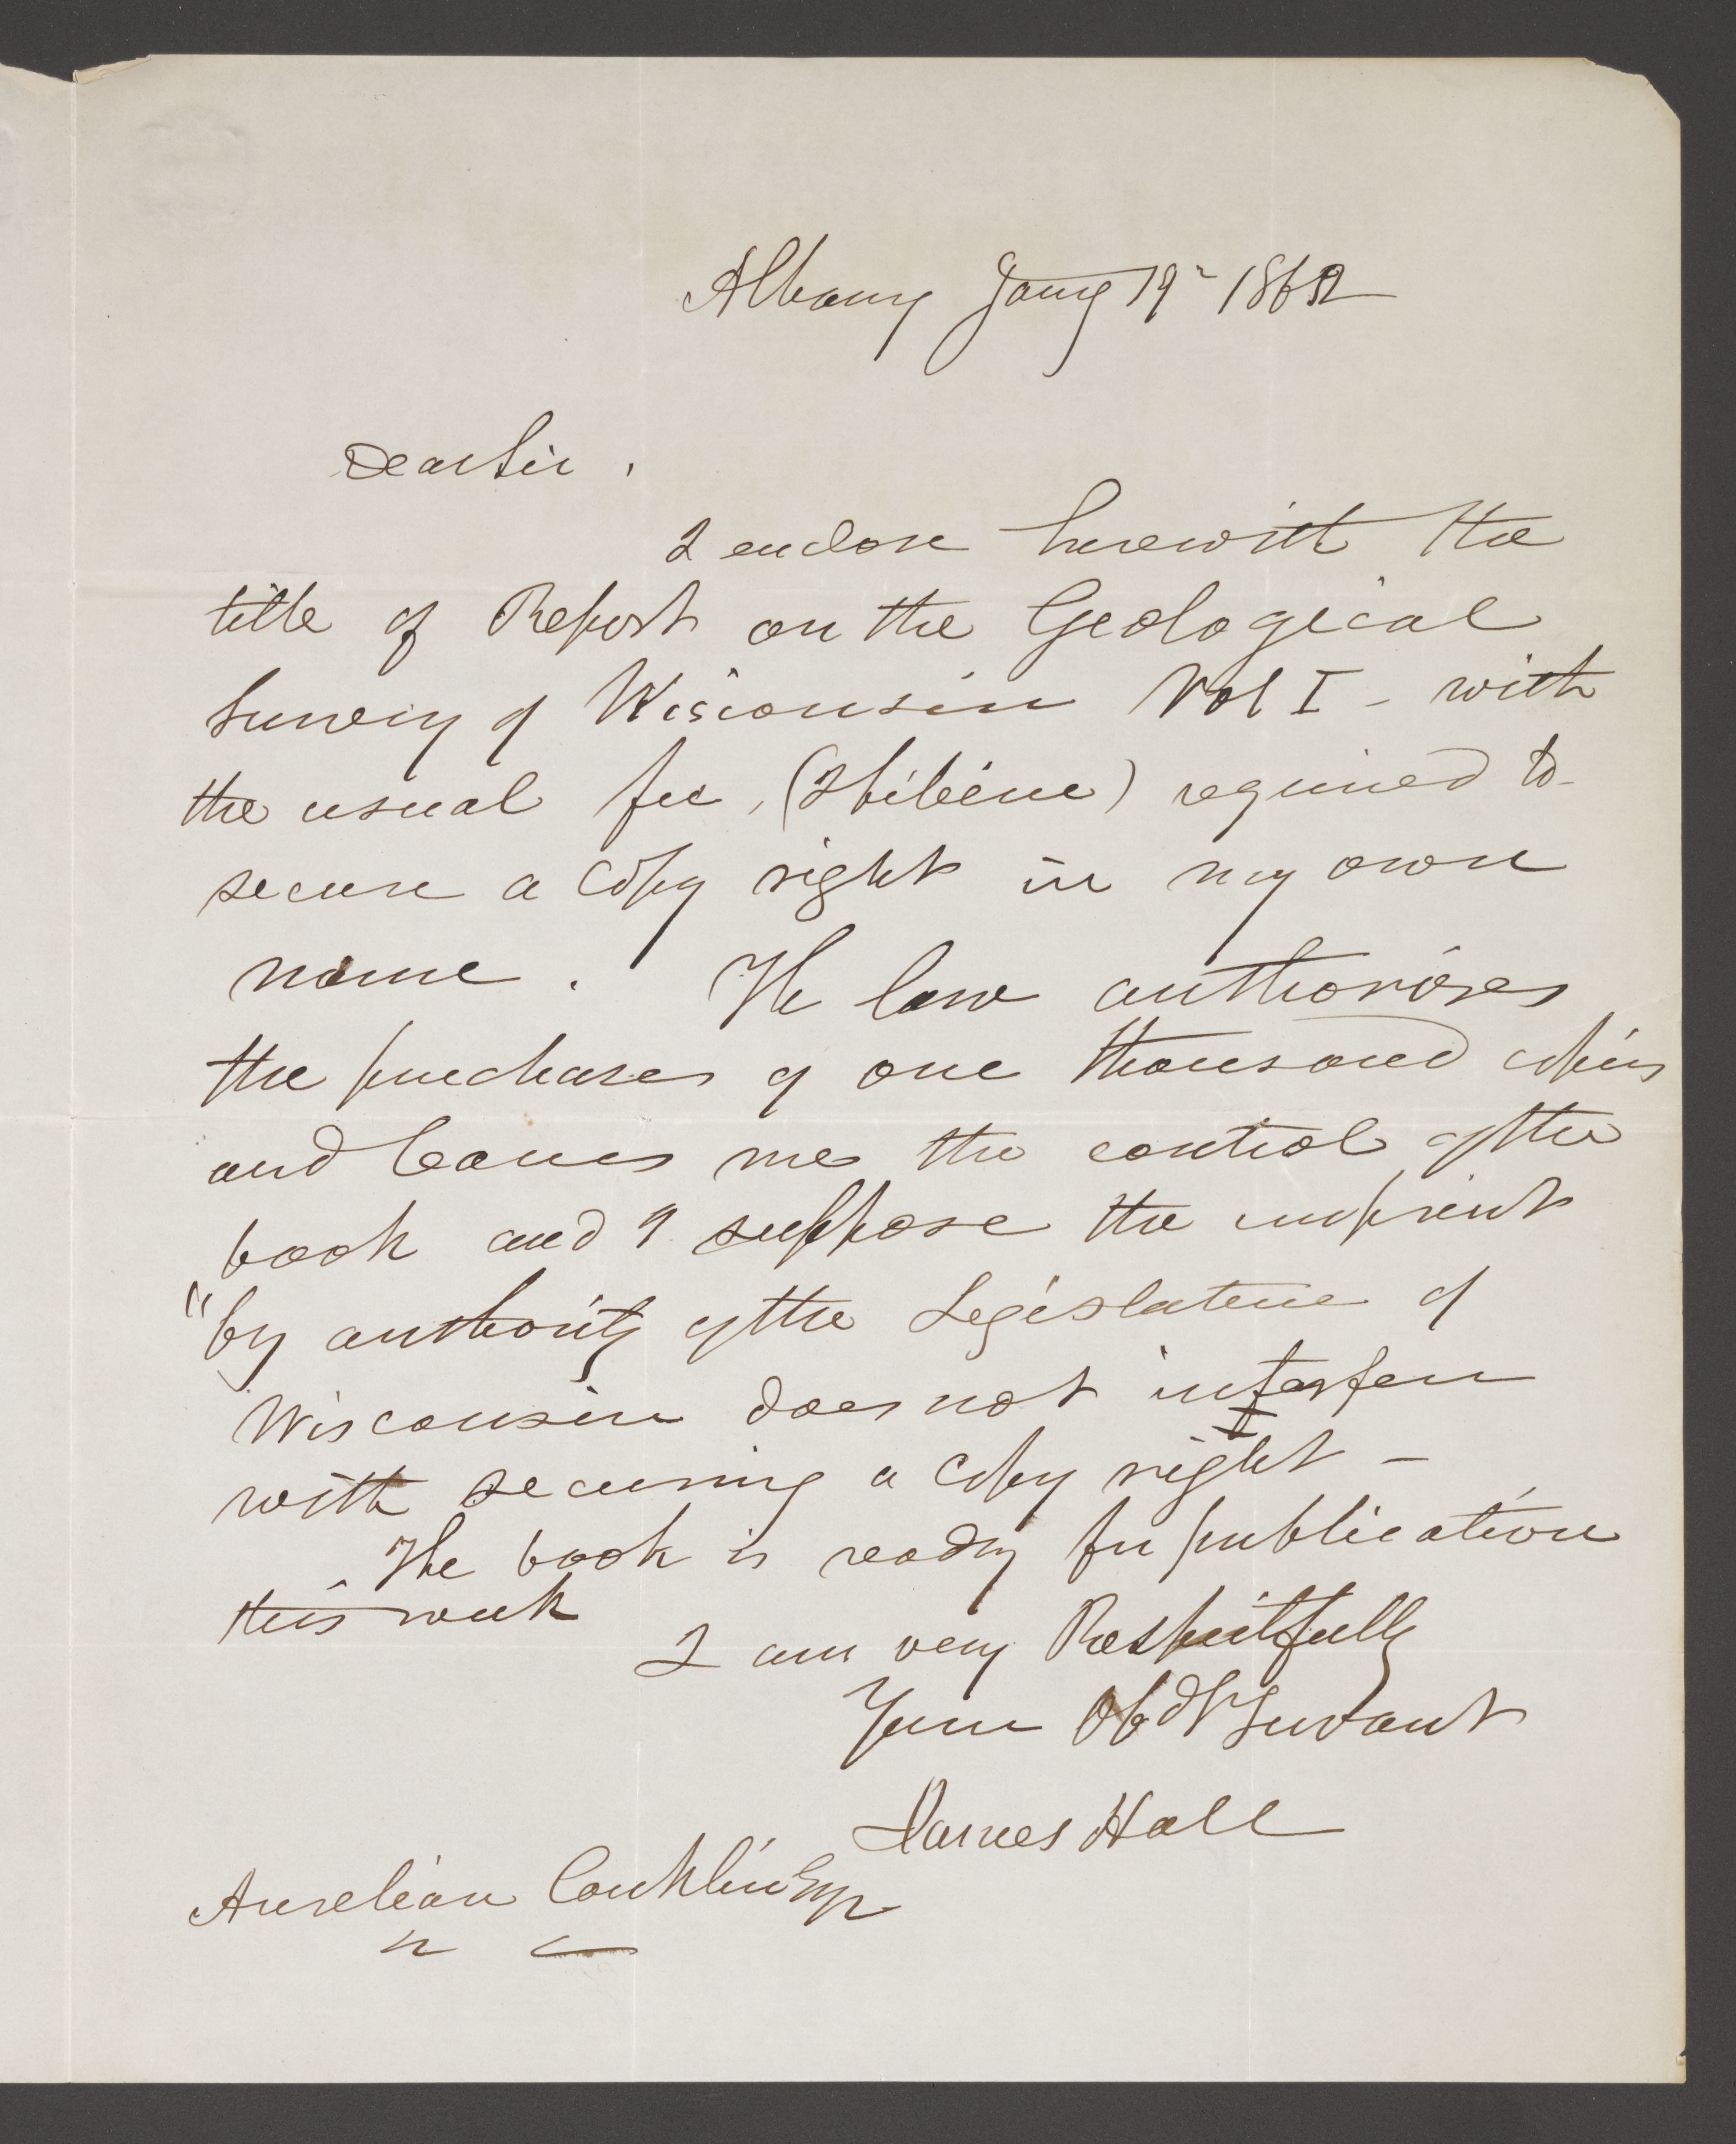 Albany Jany 19 1862
Dear Sir,
I enclose herewith the
title of Report on the Geological
Survey of Wisconsin Vol I - with
the usual fee, (I believe) required to
secure a Copy right in my own
name. The law authorizes
the purchase of one thousand copies
and leaves me the control of the
book and I suppose the imprint
"by authority of the Legislature of
Wisconsin does not interfere
with securing a Copy right -
The book is ready for publication
this week
I am very Respectfully
Your Obdt Servant
James Hall
Aurelian Conklin Esqr